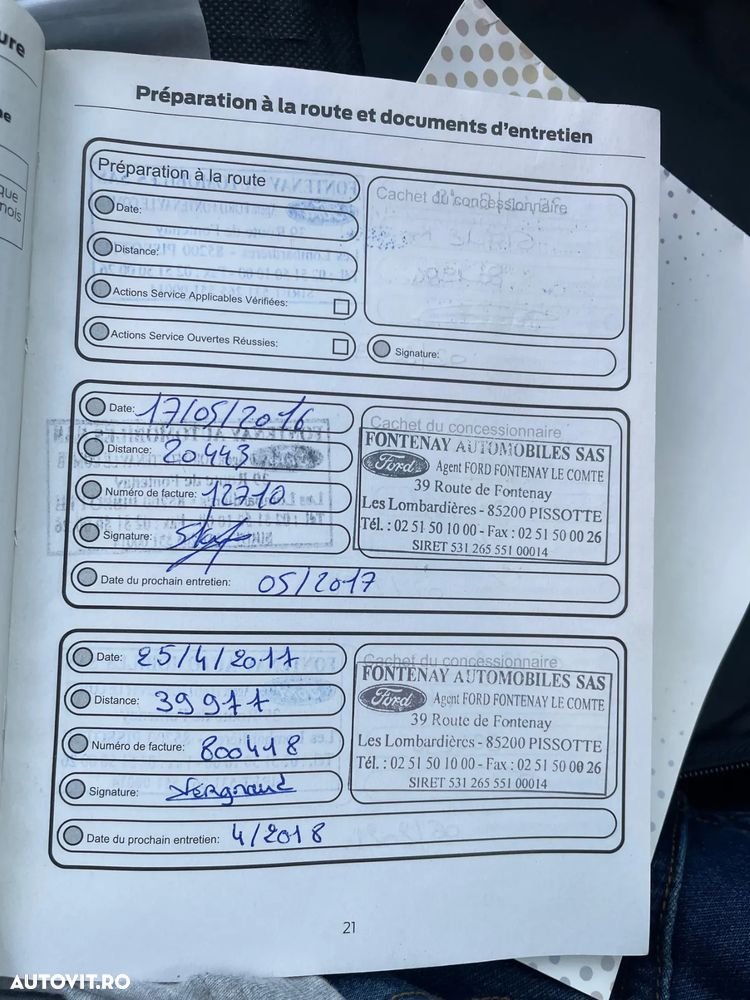 ure
ne
que
nois
Préparation à la route et documents d'entretien
Préparation à la route
Date:
Distance:
Actions Service Applicables Vérifiées:
Actions Service Ouvertes Réussies:
Cachet du concessionnaire
Signature:
Date: 17/05/2016
Distance: 20443
Numéro de facture: 12710
Signature:
Date du prochain entretien: 05/2017
Cachet du concessionnaire
FONTENAY AUTOMOBILES SAS
Ford Agent FORD FONTENAY LE COMTE
39 Route de Fontenay
Les Lombardières - 85200 PISSOTTE
Tél. : 02 51 50 10 00 - Fax : 02 51 50 00 26
SIRET 531 265 551 00014
Date: 25/4/2017
Distance: 39977
Numéro de facture: 800418
Signature:
Date du prochain entretien: 4/2018
Cachet du concessionnaire
FONTENAY AUTOMOBILES SAS
Ford Agent FORD FONTENAY LE COMTE
39 Route de Fontenay
Les Lombardières - 85200 PISSOTTE
Tél. : 02 51 50 10 00 - Fax : 02 51 50 00 26
SIRET 531 265 551 00014
21
AUTOVIT.RO